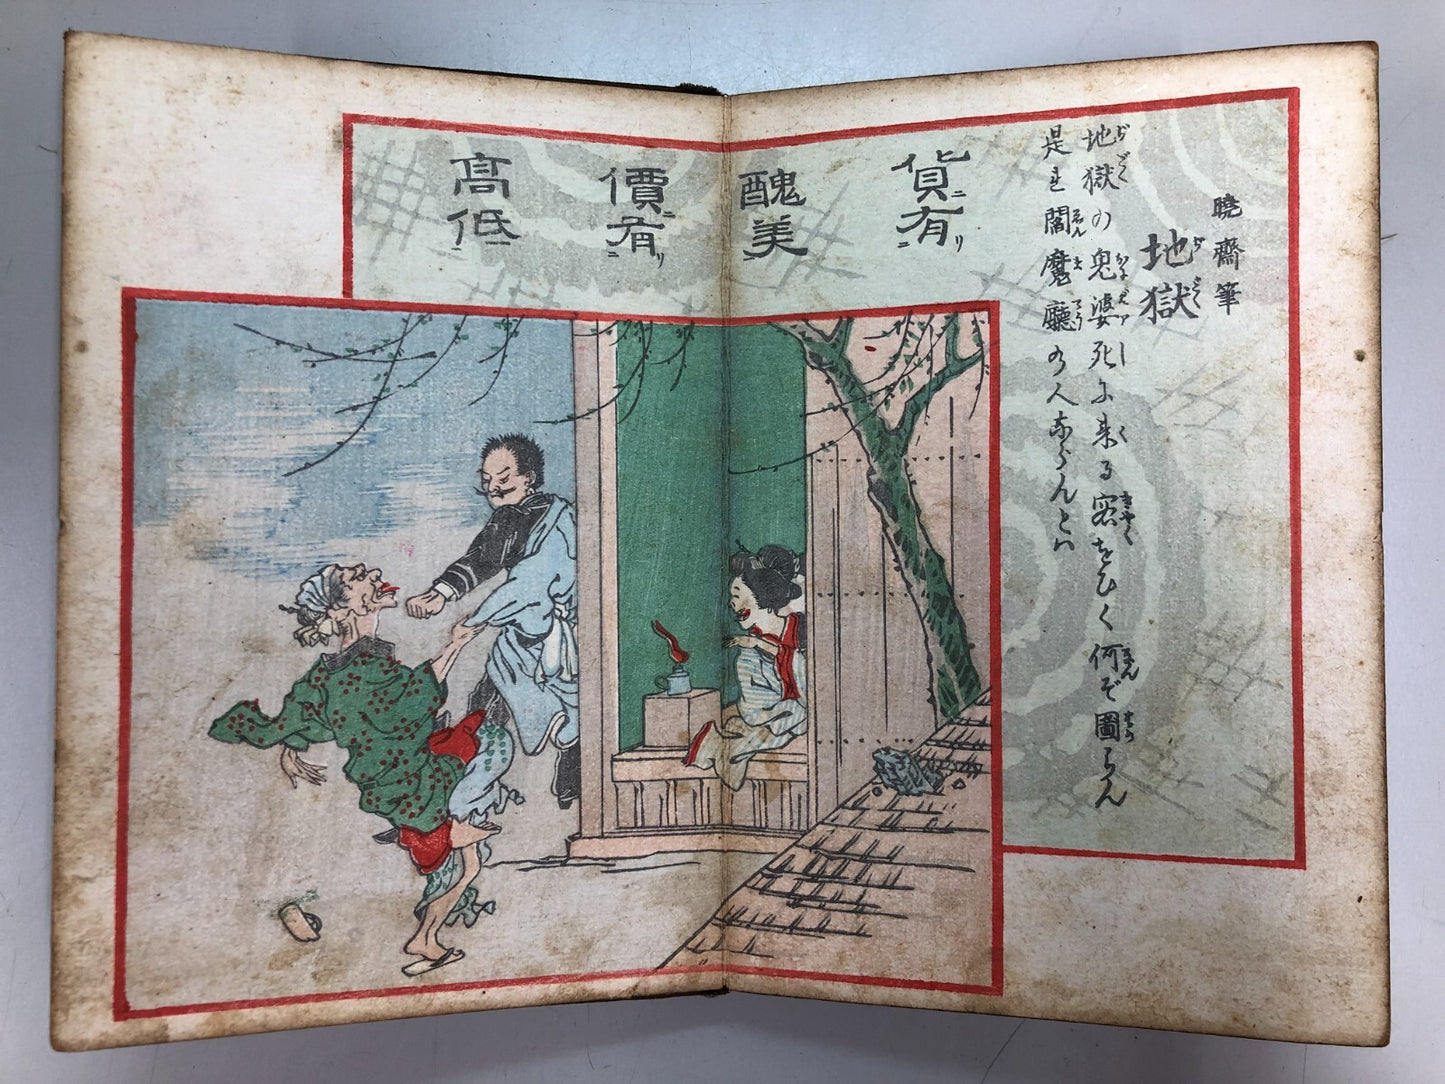 曉齋筆
地獄
地獄の鬼婆死に来る客をひく何ぞ圖らん
是れ閻魔廳の人ならんとハ
貨ニ有リ
醜美
價ニ有リ
高低